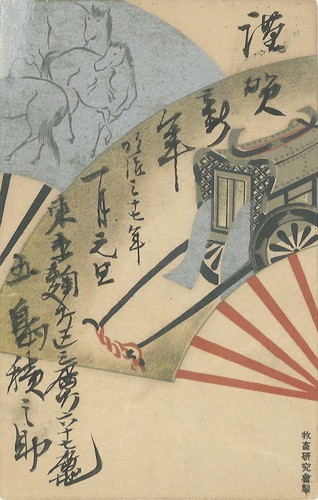 謹賀新年
明治三十七年
一月元旦
東京麹町区三番町六十七番
積之助
牧畜研究會製